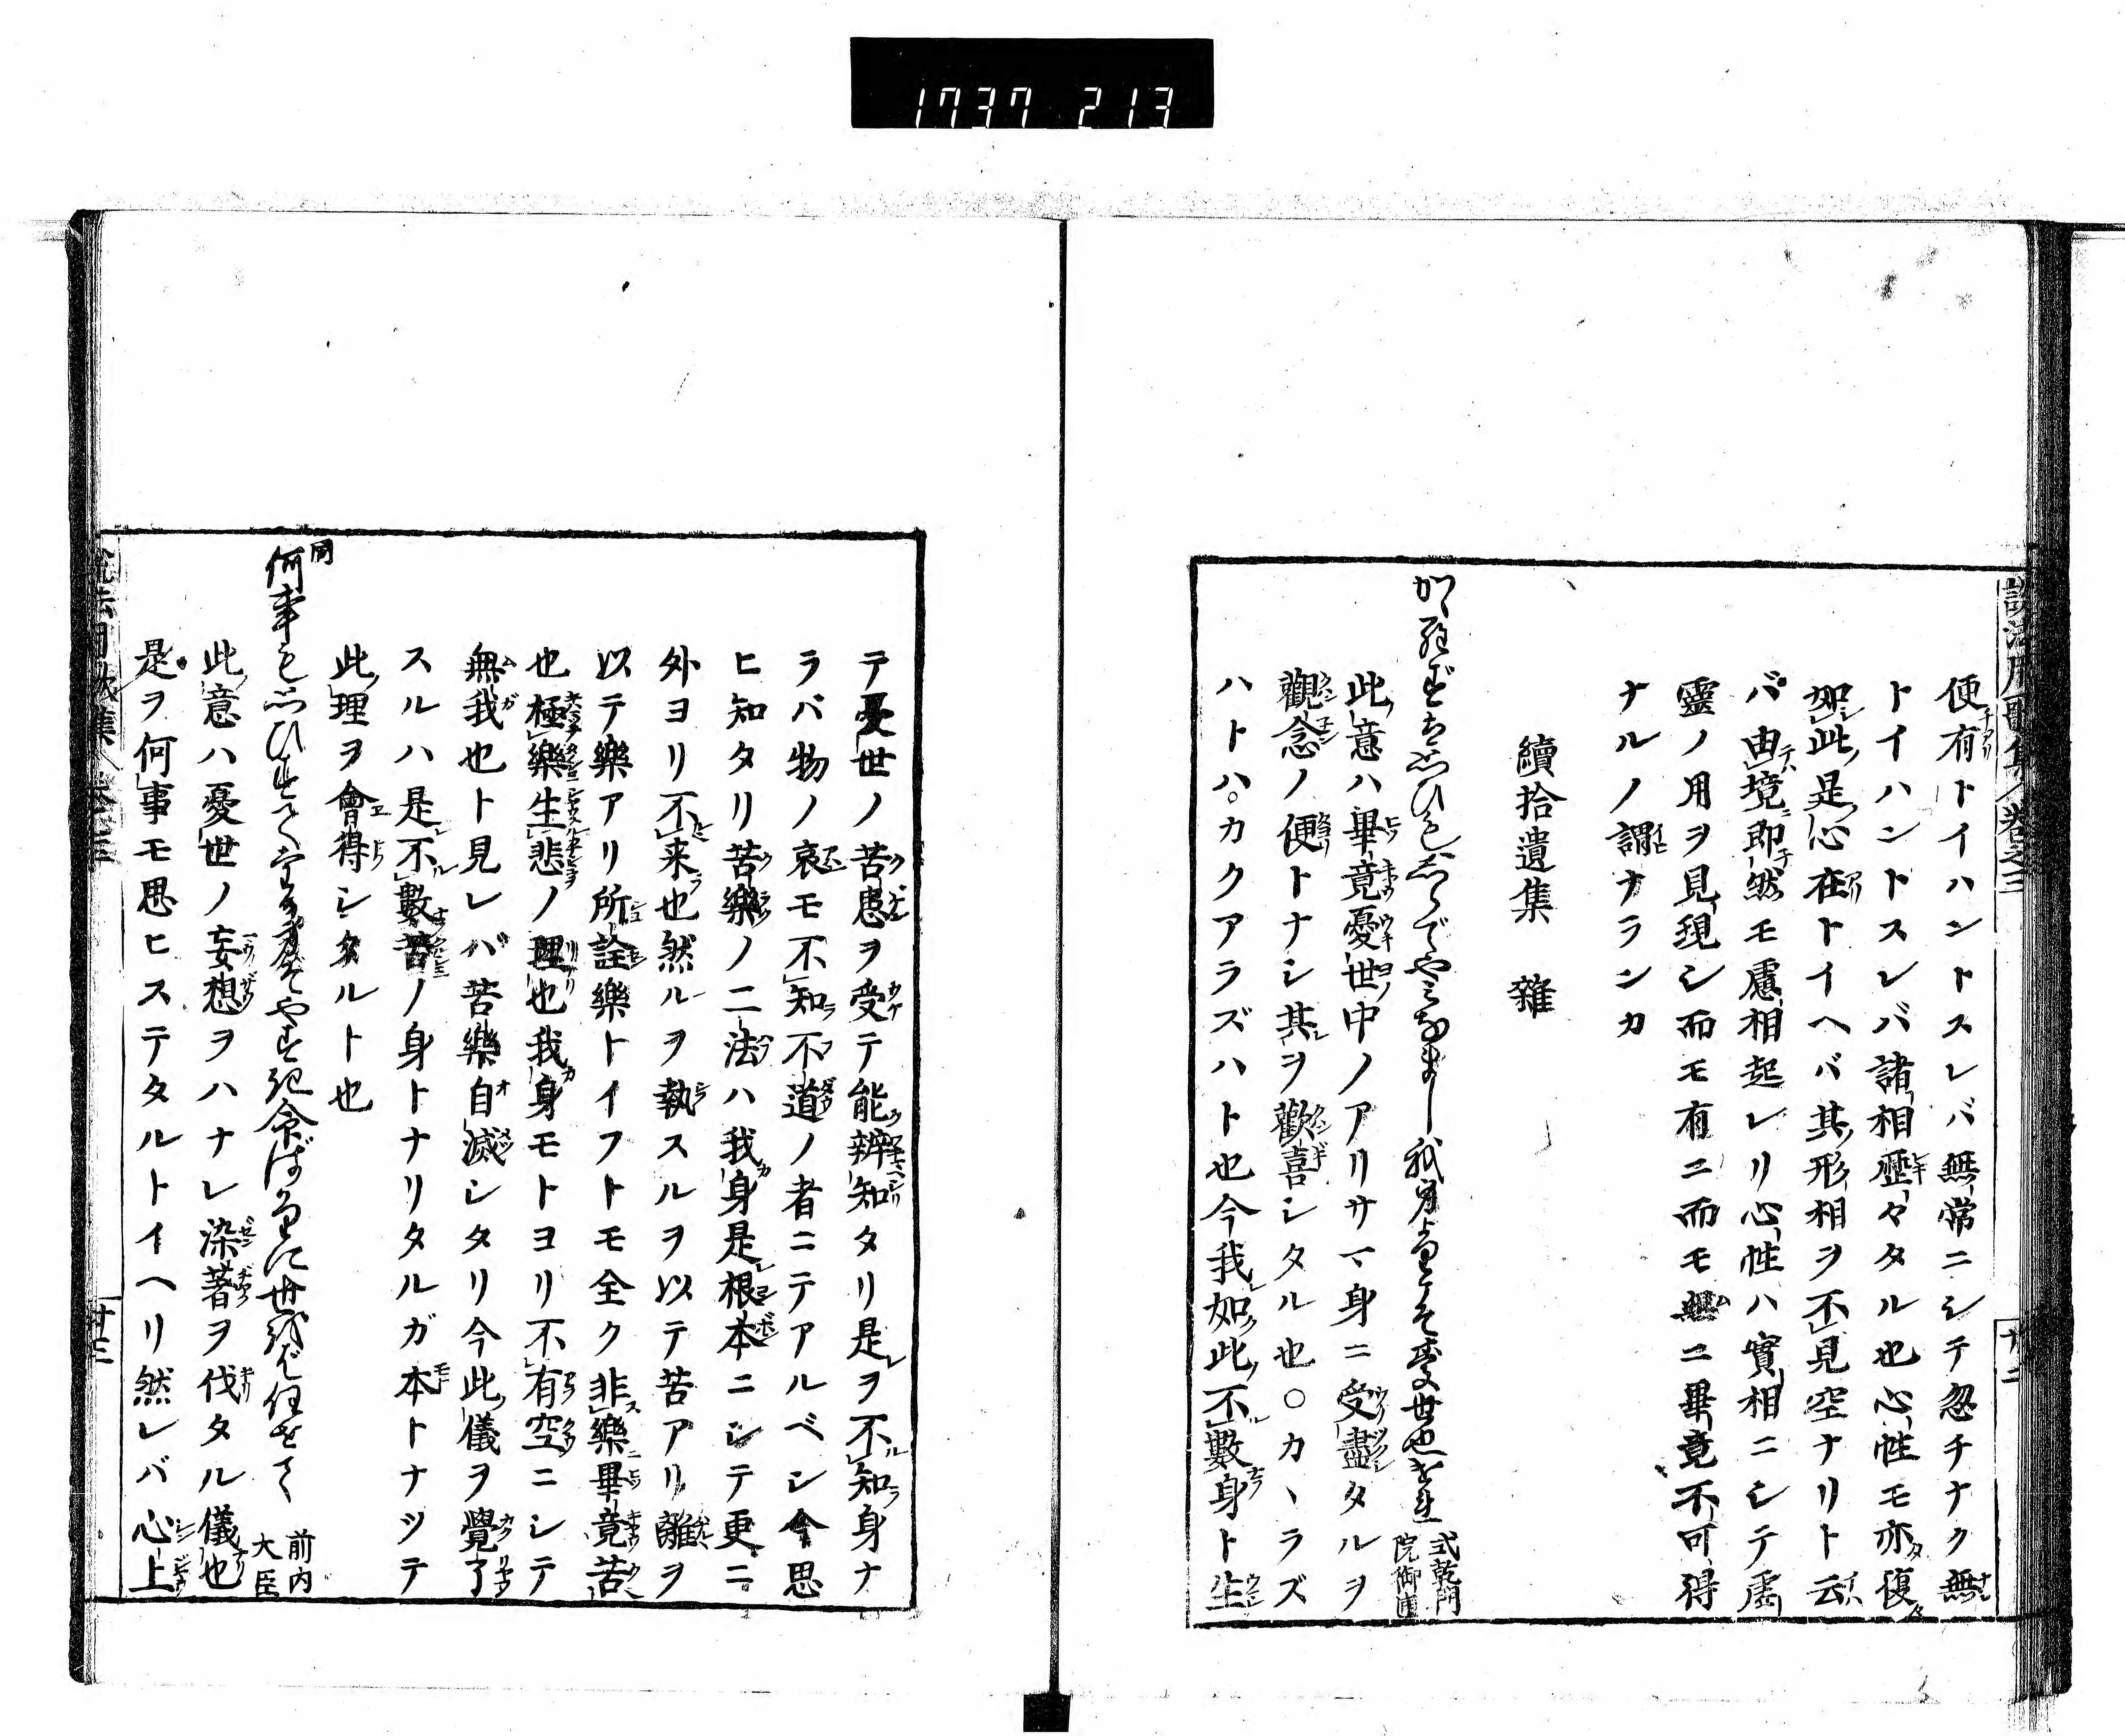 1737 213
便有トイハントスレバ無常ニシテ忽チナク無
トイハントスレバ諸相歴々タル也心性モ亦復
如此是心在トイヘバ其形相ヲ不見空ナリト云
バ由境即然モ慮相起レリ心性ハ實相ニシテ虚
靈ノ用ヲ見現シ而モ有ニ而モ無ニ畢竟不可得
ナルノ謂ナランカ
續拾遺集 雜
式乾門院御匣
此意ハ畢竟憂世中ノアリサマ身ニ受盡タルヲ
觀念ノ便トナシ其ヲ歡喜シタル也○カヽラズ
ハトハ○カクアラズハト也今我如此不數身ト生
テ憂世ノ苦患ヲ受テ能辨知タリ是ヲ不知身ナ
ラバ物ノ哀モ不知不道ノ者ニテアルベシ今思
ヒ知タリ苦樂ノ二法ハ我身是根本ニシテ更ニ
外ヨリ不来也然ルヲ執スルヲ以テ苦アリ離ヲ
以テ樂アリ所詮樂トイフトモ全ク非樂畢竟苦
也極樂生悲ノ理也我身モトヨリ不有空ニシテ
無我也ト見レバ苦樂自滅シタリ今此儀ヲ覺了
スルハ是不數苦ノ身トナリタルガ本トナツテ
此理ヲ會得シタルト也
同
何事も思ひ
前内大臣
此意ハ憂世ノ妄想ヲハナレ染著ヲ伐タル儀也
是ヲ何事モ思ヒステタルトイヘリ然レバ心上